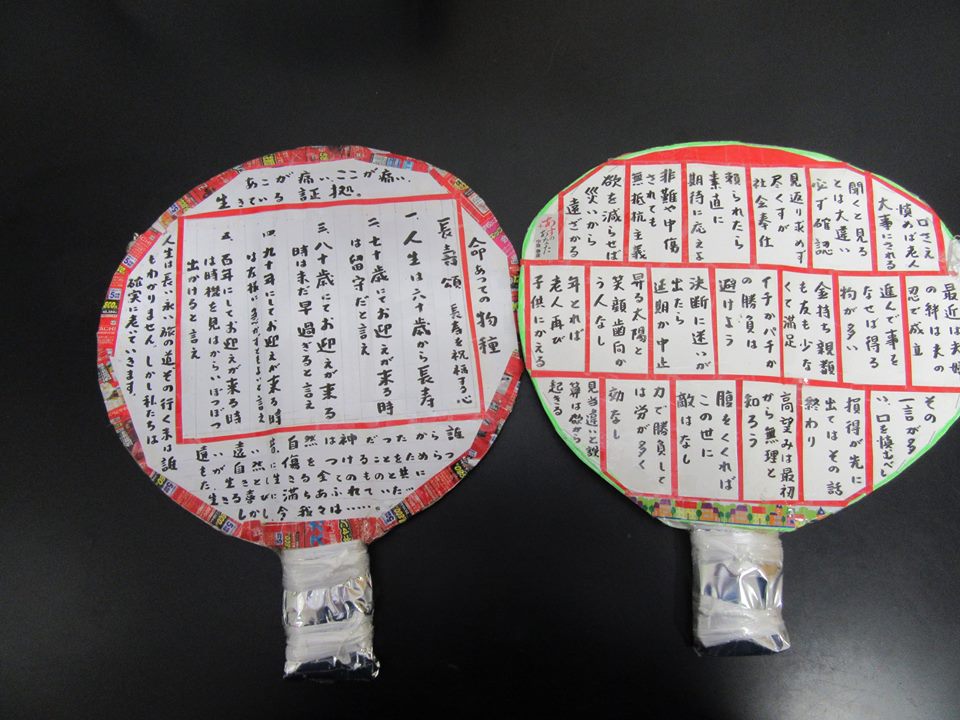 あこが痛い、ここが痛い、
生きている証拠。
命あっての物種
長寿頌 長寿を祝福する心
一 人生は六十歳から長寿
二、七十歳にてお迎えが来る時
は留守だと言え
三、八十歳にてお迎えが来る
時は未だ早過ぎると言え
四 九十年にてお迎えが来る時
五、百年にしてお迎えが来る時
は時機を見はからいぼつぼつ
出かけると言え
人生は長い永い旅の道その行く末は誰
もわかりません、しかし私たちは
確実に老いていきます。
口さえ
慎めば老人
大事にされる
聞くと見る
とは大違い
必ず確認
見返り求めず
尽くすが
社会奉仕
頼られたら
素直に
期待に応えよ
非難や中傷
されても
無抵抗主義
欲を減らせば
災いから
遠ざかる
最近は夫婦
の絆は夫の
忍で成立
進んで事を
なせば得る
物が多い
金持ち親類
も友も少な
くて満足
イチかバチか
の勝負は
避けよう
決断に迷いが
出たら
延期か中止
昇る太陽と
笑顔歯向か
う人なし
年とれば
老人再び
子供にかえる
その
一言が多
い、口を慎むべし
損得が先に
出てはその話
終わり
高望みは最初
から無理と
知ろう
腹をくくれば
この世に
敵はなし
力で勝負して
は労が多く
動なし
見当違いと誤
算は欲から
起きる